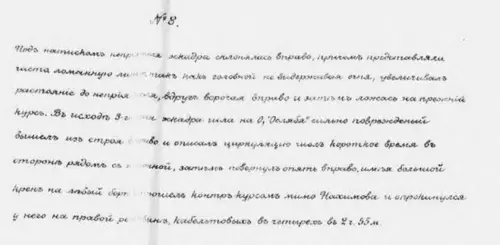 № 8.
Подъ натискомъ непр эскадра склонялась вправо, причемъ представляли
часто ломанную такъ какъ головной не выдерживая огня, увеличивалъ
растояніе до непрія вдругъ ворочая вправо и затѣмъ ложась на прежній
курсъ. Въ исходѣ 3-г эскадра шла на О, "Ослябя" сильно поврежденный
вышелъ изъ строя во и описалъ циркуляцію шелъ короткое время въ
сторонѣ рядомъ съ ной, затѣмъ повернулъ опять вправо, имѣя большой
кренъ на лѣвый бортъ контръ курсомъ мимо Нахимова и опрокинулся
у него на правой ра кабельтовыхъ въ четырехъ въ 2 ч. 55 м.